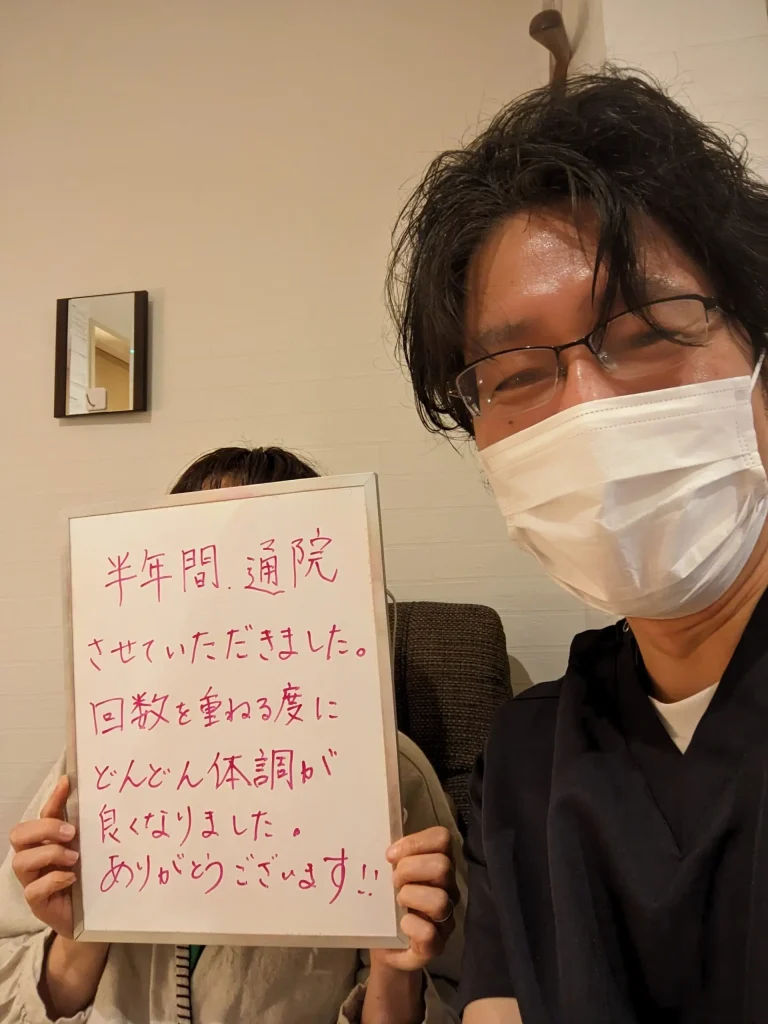 半年間、通院
させていただきました。
回数を重ねる度に
どんどん体調が
良くなりました。
ありがとうございます!!